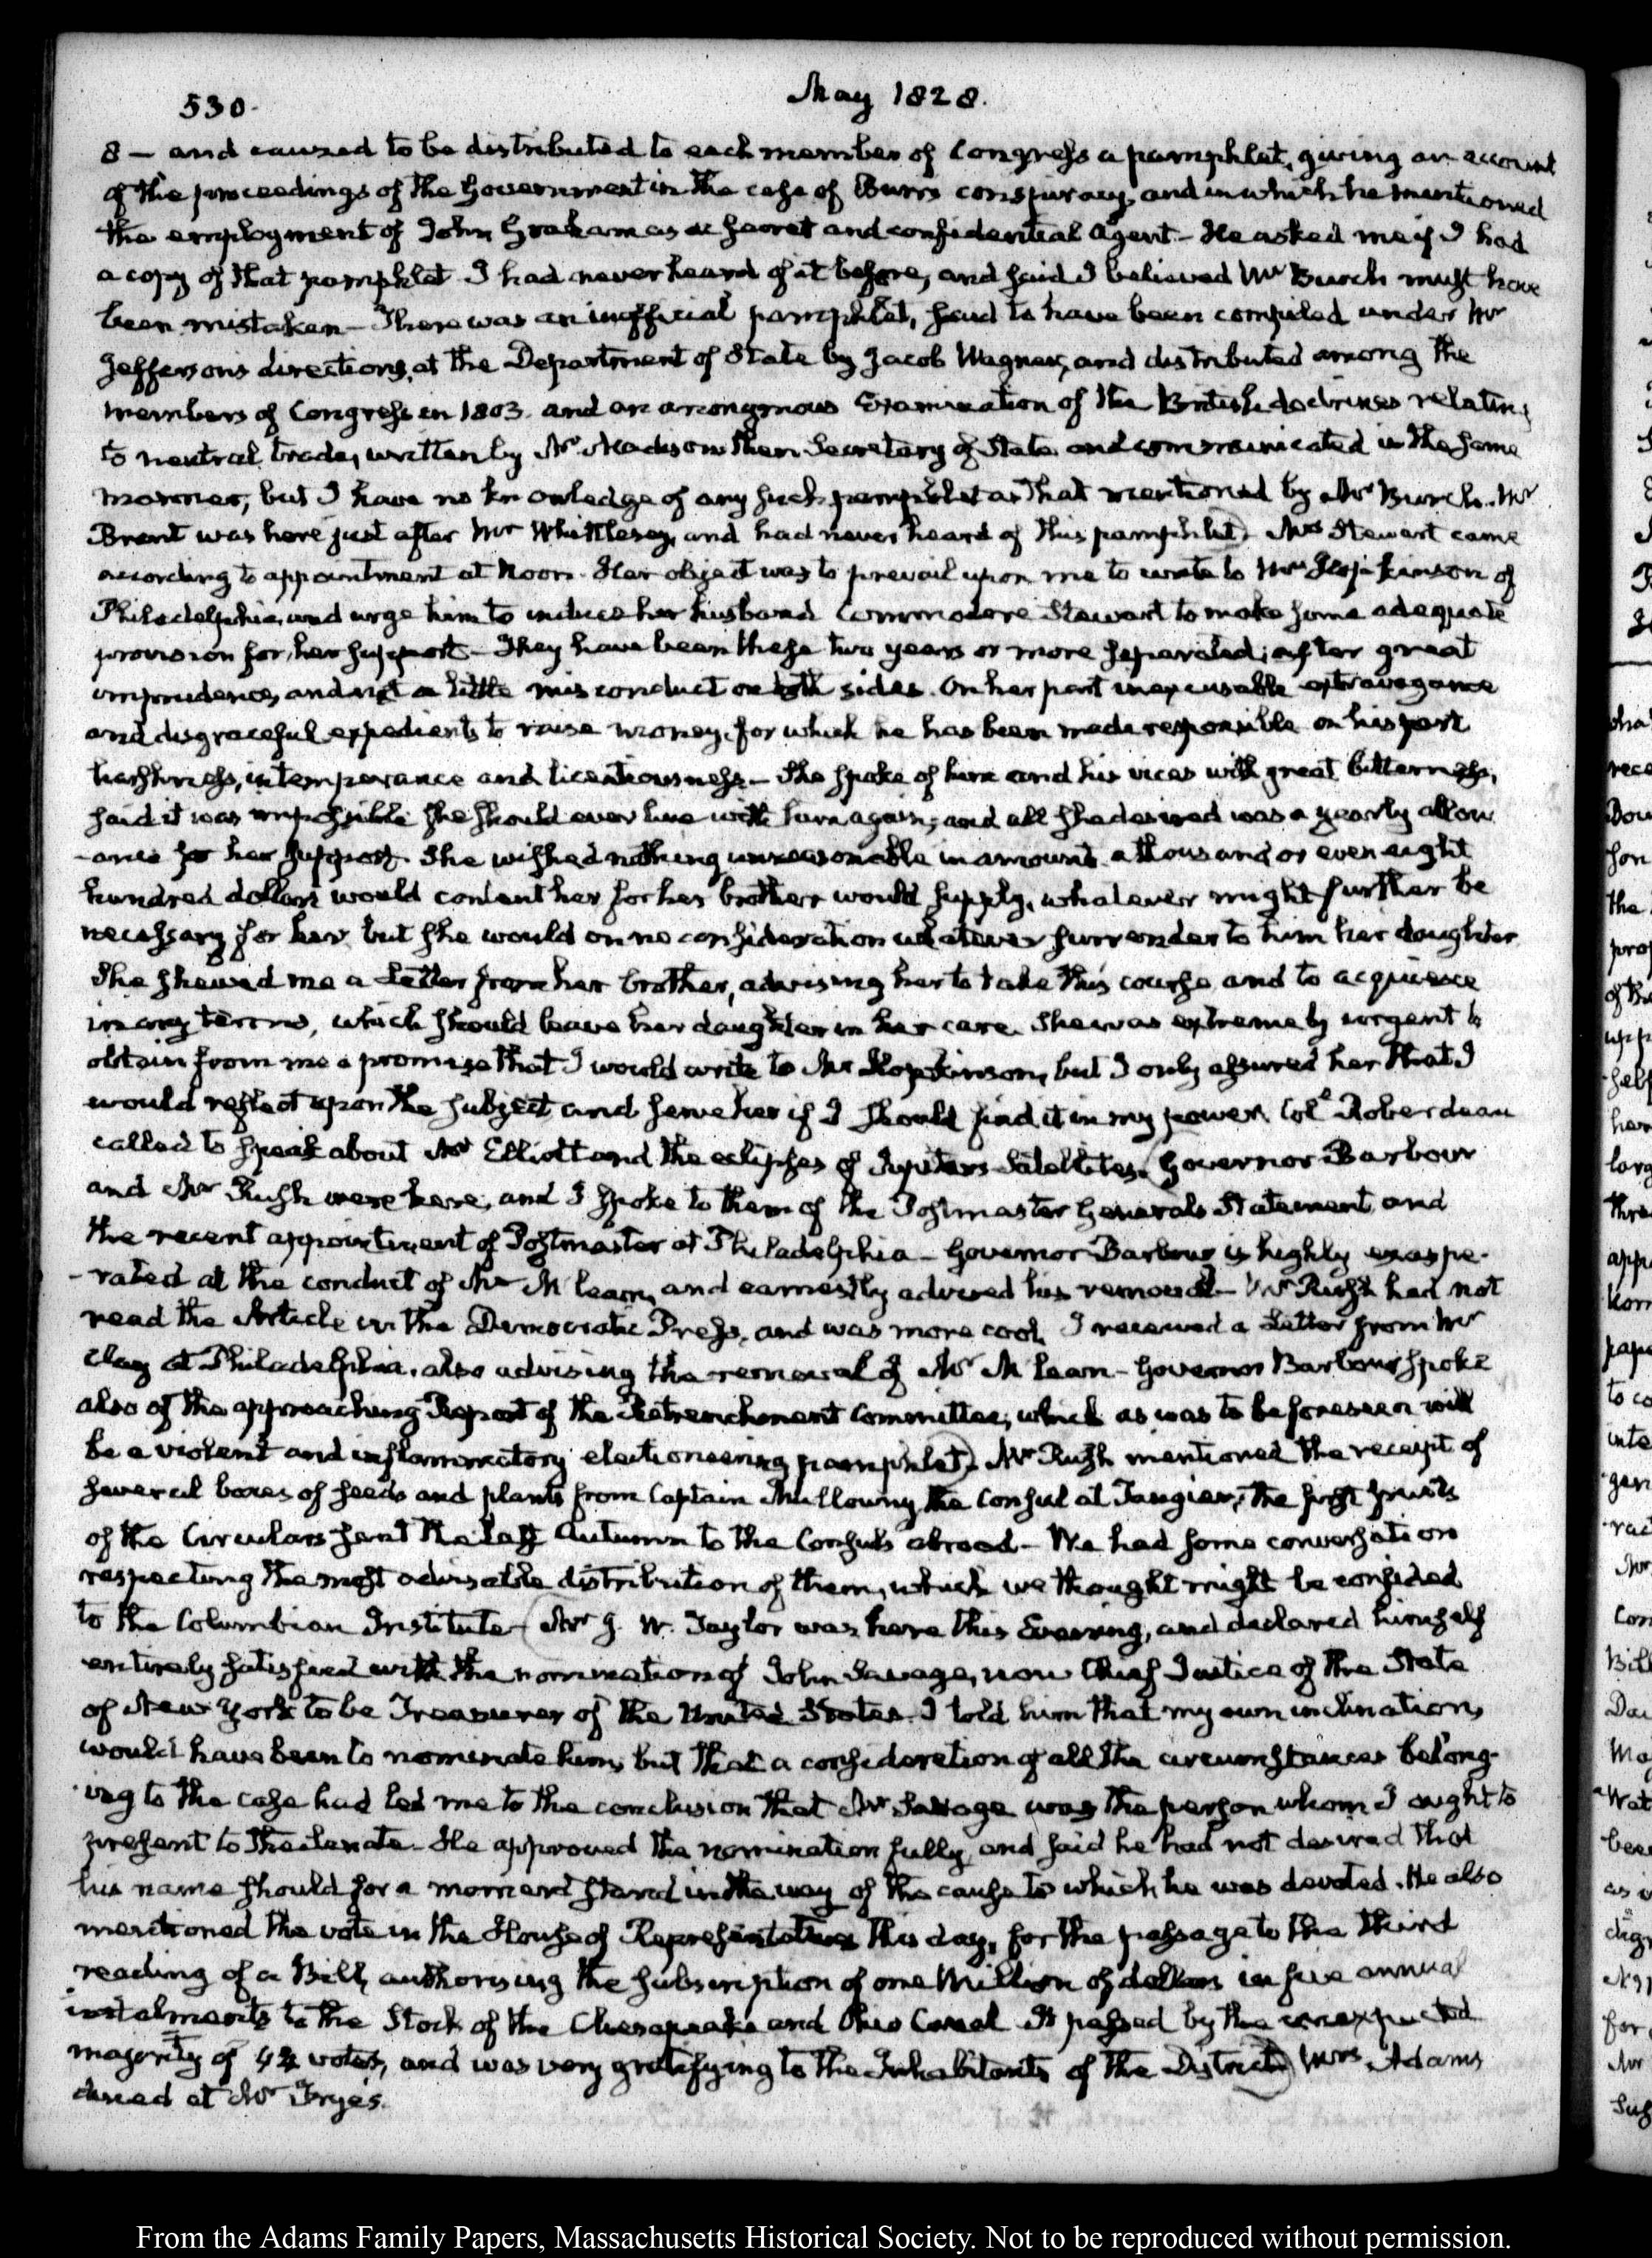 530.
May 1828.
8 — and caused to be distributed to each member of Congress a pamphlet, giving an account
of the proceedings of the Government in the case of Burr's conspiracy, and in which he mentioned
the employment of John Graham as a secret and confidential Agent — He asked me if I had
a copy of that pamphlet. I had never heard of it before, and said I believed Mr Burch must have
been mistaken — There was an inofficial pamphlet, said to have been compiled under Mr
Jefferson's directions, at the Department of State by Jacob Wagner, and distributed among the
members of Congress in 1803. and an anonymous Examination of the British doctrines relating
to neutral trade, written by Mr Madison then Secretary of State and communicated in the same
manner, but I have no knowledge of any such pamphlet as that mentioned by Mr Burch. Mr
Brent was here just after Mr Whittlesey, and had never heard of this pamphlet) Mrs Stewart came
according to appointment at Noon. Her object was to prevail upon me to write to Mr Hopkinson of
Philadelphia, and urge him to induce her husband Commodore Stewart to make some adequate
provision for her support — They have been these two years or more separated; after great
imprudence, and not a little misconduct on both sides. On her part inexcusable extravagance
and disgraceful expedients to raise money, for which he has been made responsible on his part
harshness, intemperance and licentiousness — She spoke of him and his vices with great bitterness,
said it was impossible she should ever live with him again; and all she desired was a yearly allow
-ance for her support. She wished nothing unreasonable in amount. a thousand or even eight
hundred dollars would content her, for her brother would supply, whatever might further be
necessary for her, but she would on no consideration whatever surrender to him her daughter
She shewed me a Letter from her brother, advising her to take this course, and to acquiesce
in any terms, which should leave her daughter in her care. She was extremely urgent to
obtain from me a promise that I would write to Mr Hopkinson, but I only assured her that I
would reflect upon the subject and serve her if I should find it in my power. Coll Roberdeau
called to speak about Mr Elliott and the eclipses of Jupiter's Satellites. (Governor Barbour
and Mr Rush were here, and I spoke to them of the Postmaster General's Statement, and
the recent appointment of Postmaster at Philadelphia — Governor Barbour is highly exaspe-
-rated at the conduct of Mr McLean, and earnestly advised his removal — Mr Rush had not
read the Article in the Democratic Press, and was more cool. I received a Letter from Mr
Clay at Philadelphia, also advising the removal of Mr McLean — Governor Barbour spoke
also of the approaching Report of the Retrenchment Committee, which as was to be foreseen will
be a violent and inflammatory electioneering pamphlet). Mr Rush mentioned the receipt of
several boxes of seeds and plants from Captain Mullowny the Consul at Tangier, the first fruits
of the Circulars sent the last Autumn to the Consuls abroad — We had some conversation
respecting the most advisable distribution of them, which we thought might be confided
to the Columbian Institute — (Mr J. W. Taylor was here this Evening, and declared himself
entirely satisfied with the nomination of John Savage, now Chief Justice of the State
of New York to be Treasurer of the United States. I told him that my own inclinations
would have been to nominate him, but that a consideration of all the circumstances belong-
-ing to the case had led me to the conclusion that Mr Savage was the person whom I ought to
present to the Senate. He approved the nomination fully, and said he had not desired that
his name should for a moment stand in the way of the cause to which he was devoted. He also
mentioned the vote in the House of Representatives this day, for the passage to the third
reading of a Bill, authorising the subscription of one Million of dollars in five annual
instalments to the Stock of the Chesapeake and Ohio Canal. It passed by the unexpected
majority of votes, and was very gratifying to the Inhabitants of the District) Mrs Adams
dined at Mr Frye's.
From the Adams Family Papers, Massachusetts Historical Society. Not to be reproduced without permission.